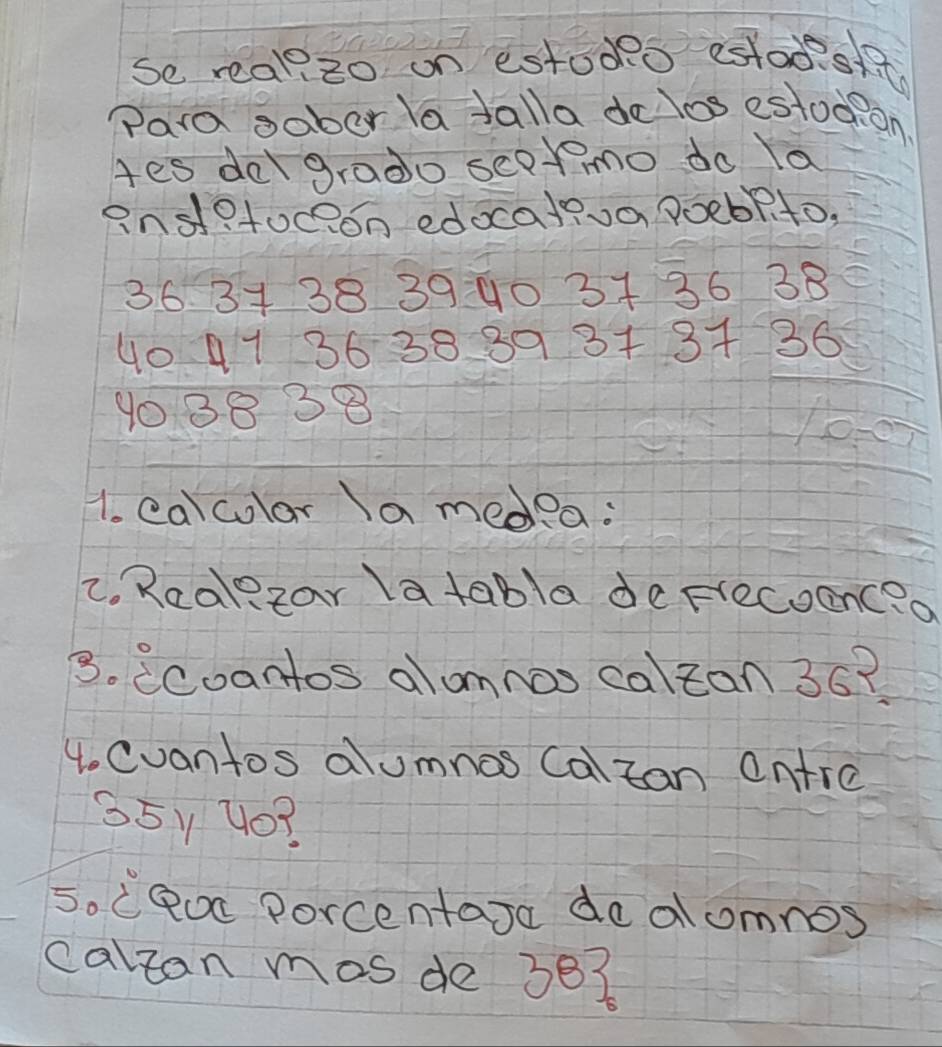 Se realizo un estudio estadistic
Para saber la talla de los estudian.
tes del grado septimo de la
institución educativa pueblito.
36 37 38 39 40 37 36 38
40 41 36 38 39 37 37 36
40 38 38
1. calcular la media:
2. Realizar la tabla de Frecuencia
3. ¿cuantos alumnos calzan 36?
4. Cuantos alumnos calzan entre
35 y 40?
5. ¿Que porcentaje de alumnos
calzan mas de 38?